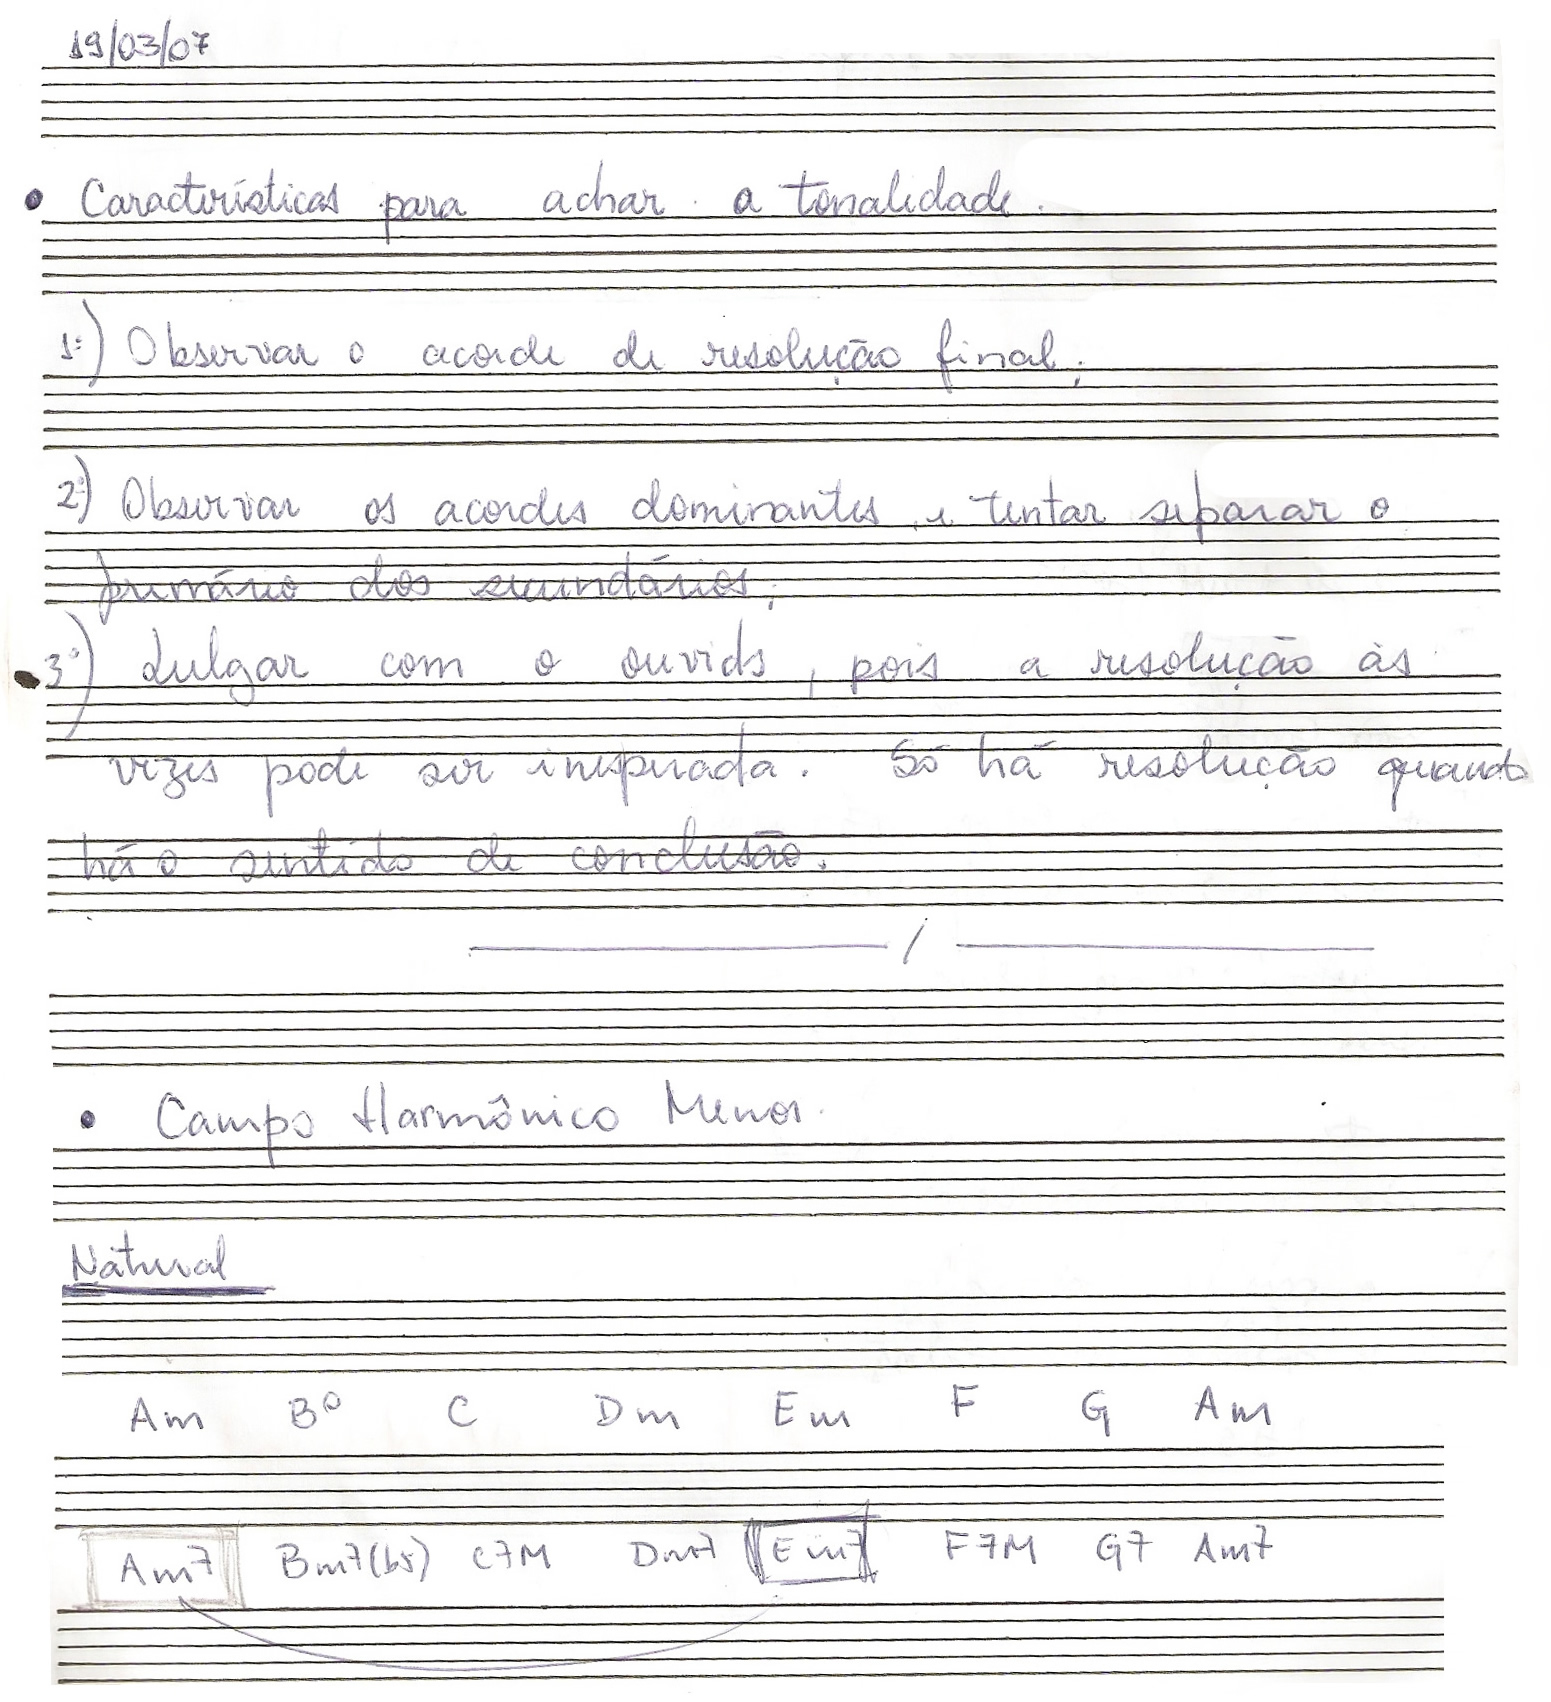 19/03/07
• Características para achar a tonalidade.
1º) Observar o acorde de resolução final;
2º) Observar os acordes dominantes e tentar separar o
primário dos secundários;
3º) Julgar com o ouvido, pois a resolução às
vezes pode ser inesperada. Só há resolução quando
há o sentido de conclusão.
/
• Campo Harmônico Menor.
Natural
Am B° C Dm Em F G Am
Am7 Bm7(b5) C7M Dm7 Em7 F7M G7 Am7